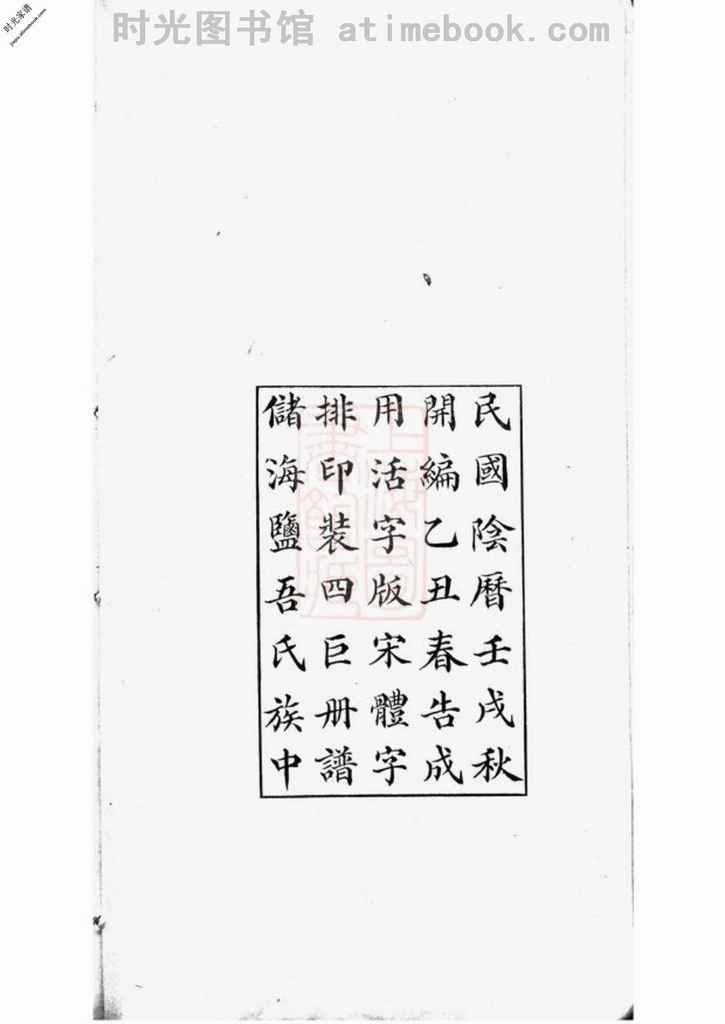 时光图书馆 atimebook.com
时光家谱
民國陰曆壬戌秋
開編乙丑春告成
用活字版宋體字
排印裝四巨册譜
儲海鹽吾氏族中